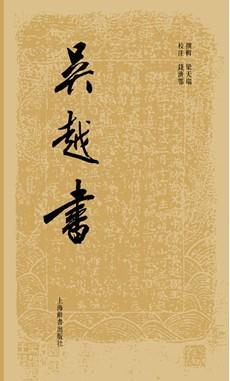 撰輯 梁天瑞
校注 錢濟鄂
吳越書
上海辭書出版社